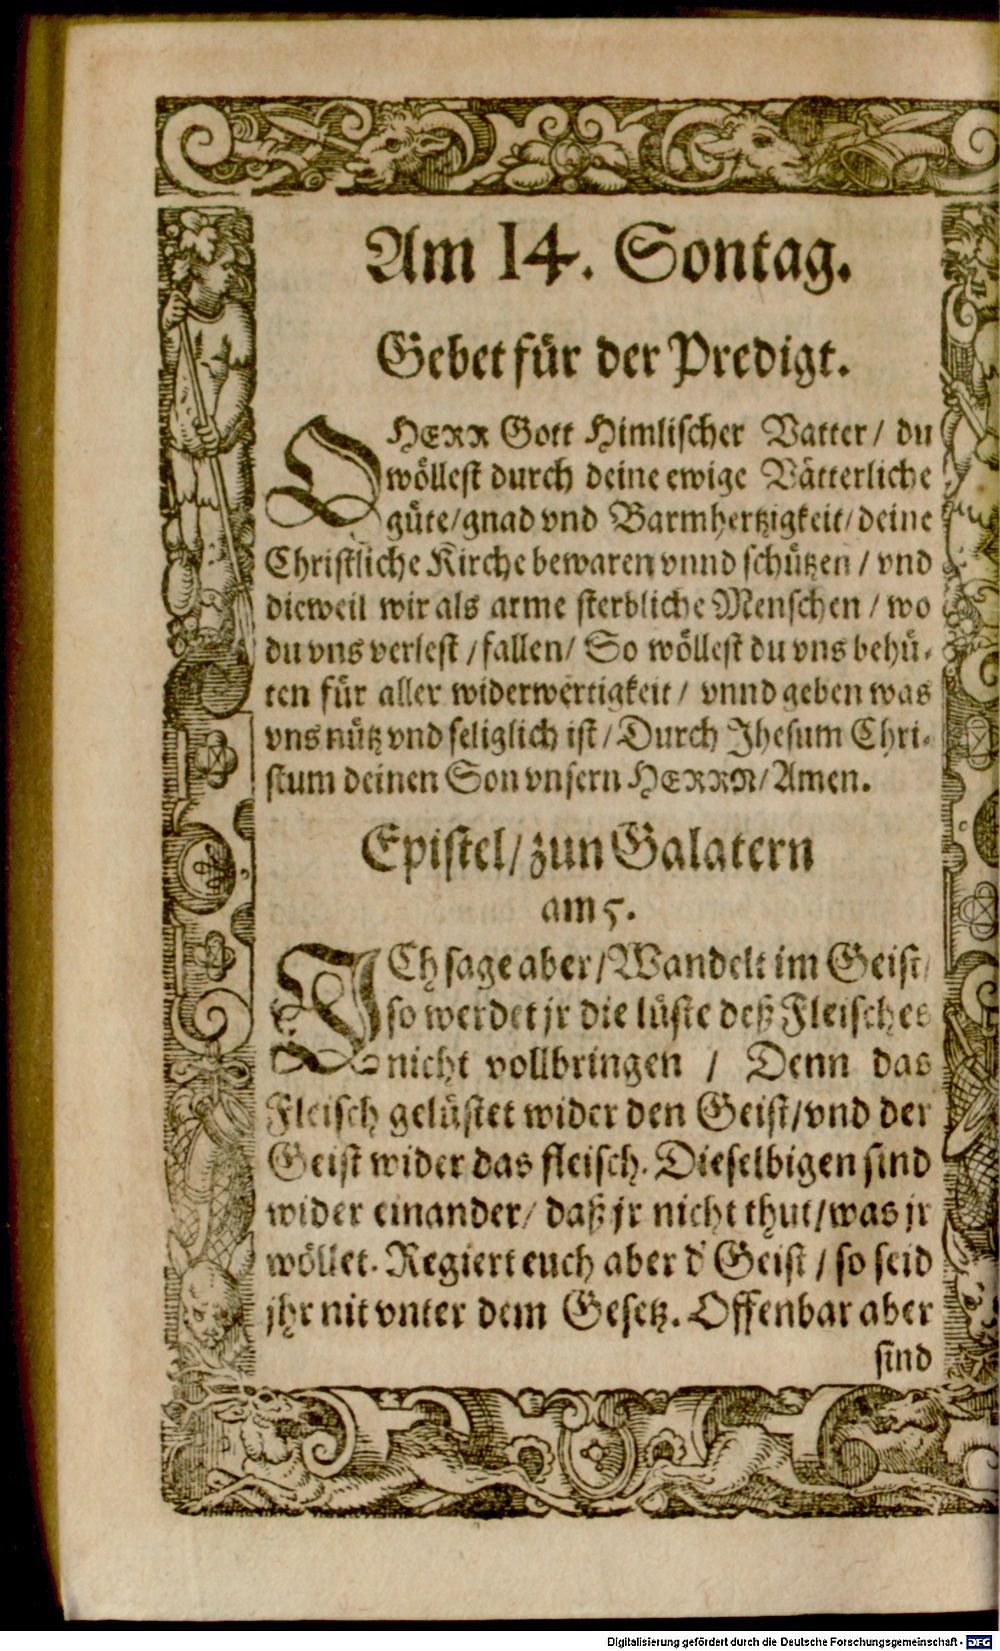 Am 14. Sontag.
Gebet für der Predigt.
O HERR Gott Himlischer Vatter / du
wöllest durch deine ewige Vätterliche
güte / gnad vnd Barmhertzigkeit / deine
Christliche Kirche bewaren vnnd schützen / vnd
dieweil wir als arme sterbliche Menschen / wo
du vns verlest / fallen / So wöllest du vns behü-
ten für aller widerwertigkeit / vnnd geben was
vns nütz vnd seliglich ist / Durch Jhesum Chri-
stum deinen Son vnsern HERRN / Amen.
Epistel / zun Galatern
am 5.
ICh sage aber / Wandelt im Geist /
so werdet jr die lüste deß Fleisches
nicht vollbringen / Denn das
Fleisch gelüstet wider den Geist / vnd der
Geist wider das fleisch. Dieselbigen sind
wider einander / daß jr nicht thut / was jr
wöllet. Regiert euch aber d' Geist / so seid
jhr nit vnter dem Gesetz. Offenbar aber
sind
Digitalisierung gefördert durch die Deutsche Forschungsgemeinschaft - DFG